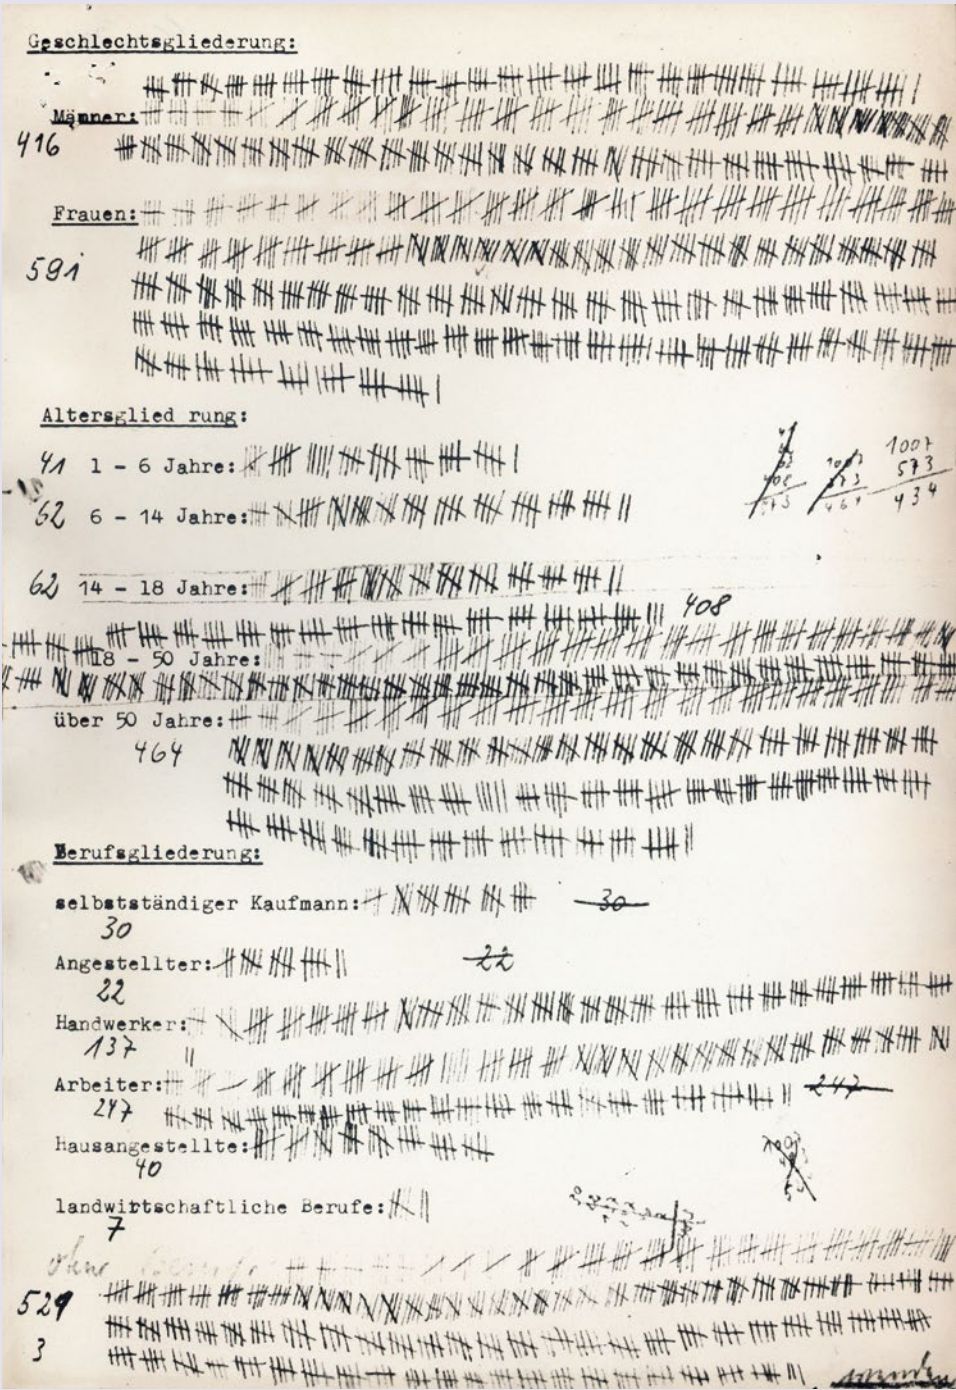 Geschlechtsgliederung:
Männer:
416
Frauen:
591
Altersglied rung:
41 1 - 6 Jahre:
1007
573
434
62 6 - 14 Jahre:
62 14 - 18 Jahre:
408
18 - 50 Jahre:
über 50 Jahre:
464
Berufsgliederung:
selbstständiger Kaufmann: 30
30
Angestellter: 22
22
Handwerker:
137
Arbeiter: 247
247
Hausangestellte:
40
landwirtschaftliche Berufe:
7
ohne Beruf:
529
3
wenden